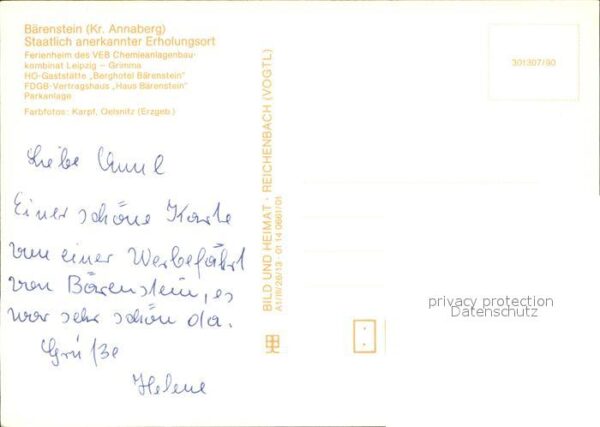 Bärenstein (Kr. Annaberg)
Staatlich anerkannter Erholungsort
Ferienheim des VEB Chemieanlagenbau-
kombinat Leipzig – Grimma
HO-Gaststätte „Berghotel Bärenstein"
FDGB-Vertragshaus „Haus Bärenstein"
Parkanlage
Farbfotos: Karpf, Oelsnitz (Erzgeb.)
Liebe
Einer schöne Karte
von einer Werbefahrt
von Bärenstein, es
war sehr schön da.
Grüße
Helene
BILD UND HEIMAT · REICHENBACH (VOGTL)
A1/III/26/13 01 14 0661/01
301307/90
privacy protection
Datenschutz